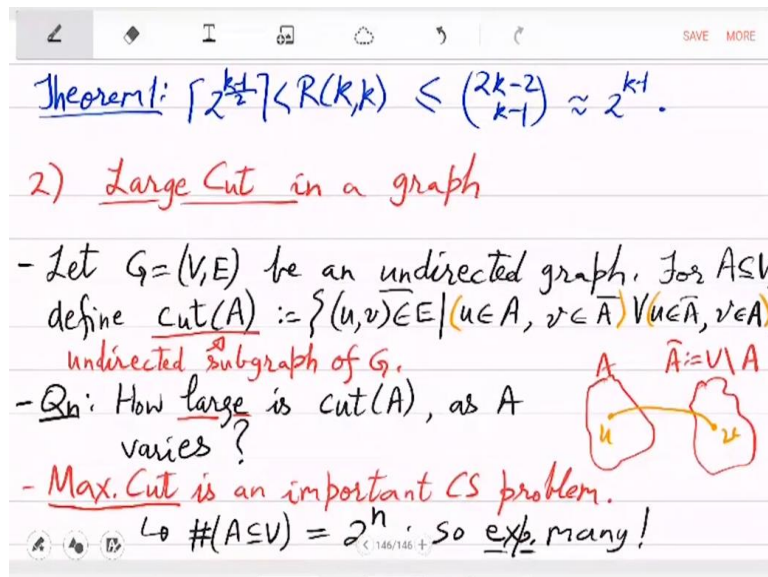 SAVE MORE
Theorem 1: ⌈2^{(k-1)/2}⌉ < R(k,k) ≤ (2k-2 choose k-1) ≈ 2^{k-1}.
2) Large Cut in a graph
- Let G=(V,E) be an undirected graph. For A⊆V
define cut(A) := {(u,v)∈E | (u∈A, v∈Ā) V (u∈Ā, v∈A)
undirected subgraph of G.
A Ā:=V\A
- Qn: How large is cut(A), as A
varies?
u v
- Max. Cut is an important CS problem.
↳ #(A⊆V) = 2^n. So exp. many!
< 146/146 +